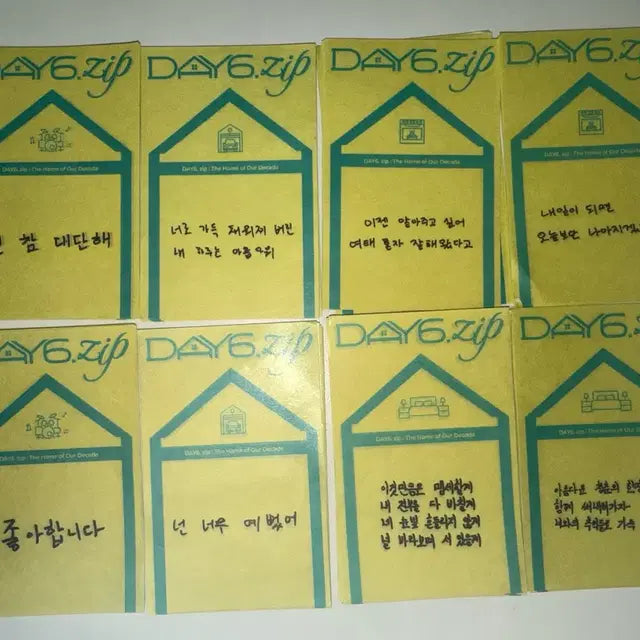 DAY6.zip
DAY6.zip : The Home of Our Decade
참 대단해
DAY6.zip
DAY6.zip : The Home of Our Decade
너로 가득 채워져 버린
내
DAY6.zip
DAY6.zip : The Home of Our Decade
이젠 알아주고 싶어
여태 혼자 잘해왔다고
DAY6.zip
DAY6.zip : The Home of Our Decade
내일이 되면
오늘보단
DAY6.zip
DAY6.zip : The Home of Our Decade
좋아합니다
DAY6.zip
DAY6.zip : The Home of Our Decade
넌 너무 예뻤어
DAY6.zip
DAY6.zip : The Home of Our Decade
이것만큼은 맹세할게
내 전부를 다 바칠게
네 눈빛 흔들리지 않게
널 바라보며 서 있을게
DAY6.
DAY6.zip : The Home of Our
아름다운 청춘의 한
함께 써내려가자
너와의 추억들로 가득